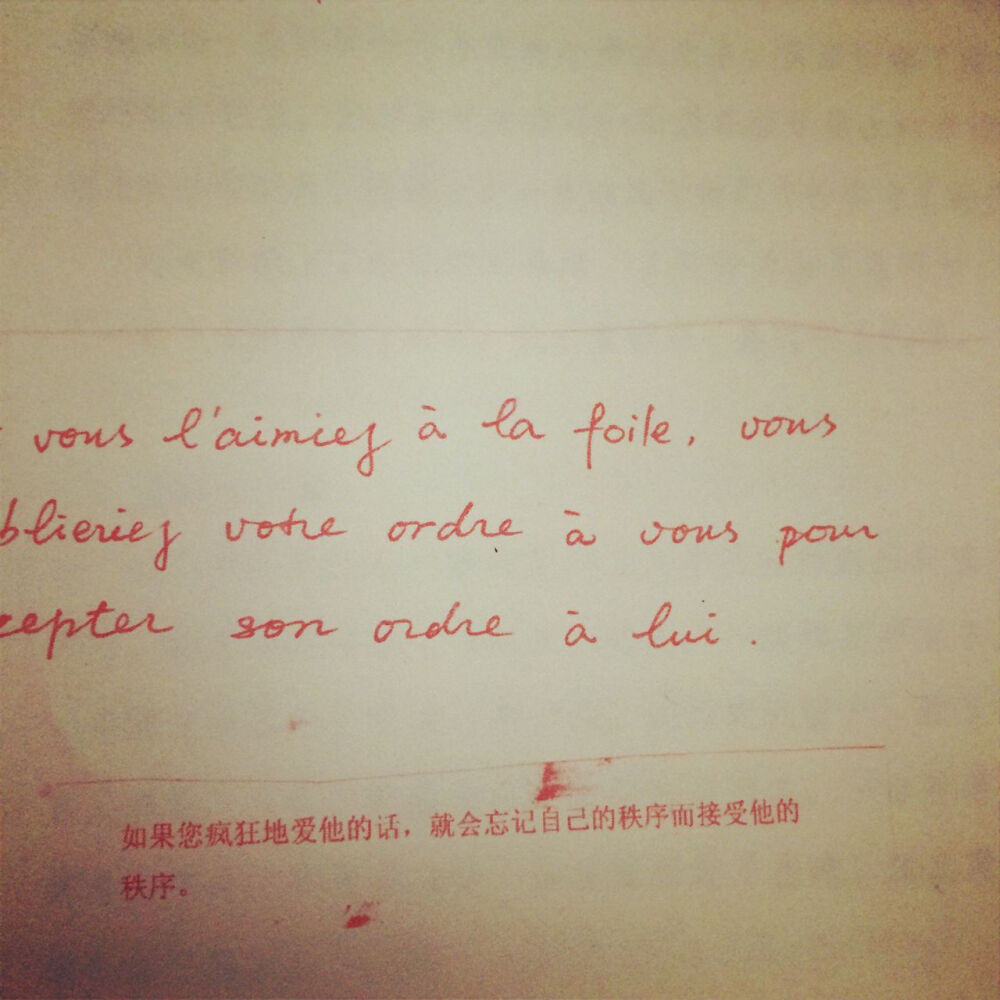 vous l'aimiez à la foile, vous
blieriez votre ordre à vous pour
cepter son ordre à lui.
如果您疯狂地爱他的话，就会忘记自己的秩序而接受他的
秩序。